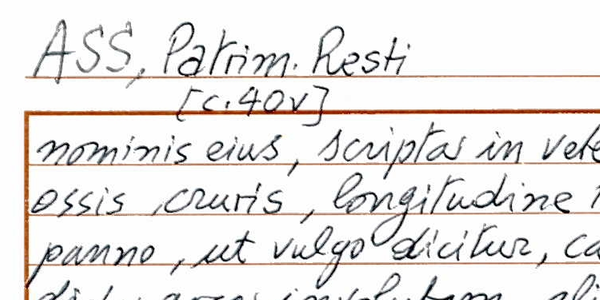 ASS, Patrim. Resti
[c.40v]
nominis eius, scripta in vete
ossis cruris, longitudine
panno, ut vulgo dicitur, ca
involutam